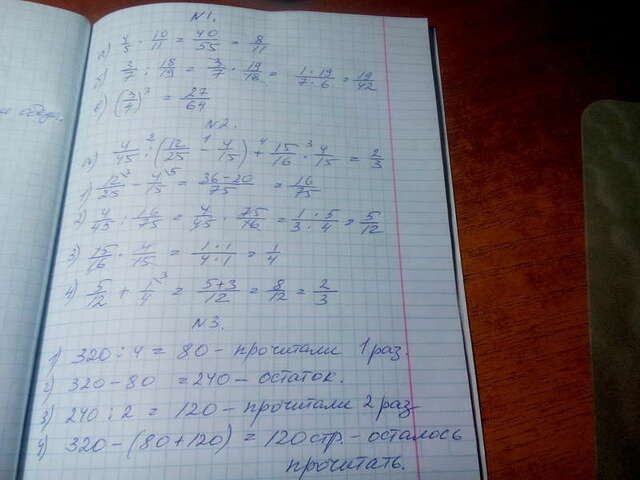 N1.
а) 4/5 · 10/11 = 40/55 = 8/11
б) 3/7 : 18/19 = 3/7 · 19/18 = 1·19/7·6 = 19/42
в) (3/4)³ = 27/64
N2.
а) 4/45 :² (12/25 -¹ 4/15) +⁴ 15/16 ·³ 4/15 = 2/3
1) 12/25 - 4/15 = 36-20/75 = 16/75
2) 4/45 : 16/75 = 4/45 · 75/16 = 1·5/3·4 = 5/12
3) 15/16 · 4/15 = 1·1/4·1 = 1/4
4) 5/12 + 1/4 = 5+3/12 = 8/12 = 2/3
N3.
1) 320 : 4 = 80 - прочитали 1 раз.
2) 320 - 80 = 240 - остаток.
3) 240 : 2 = 120 - прочитали 2 раз
4) 320 - (80 + 120) = 120 стр. - осталось
прочитать.